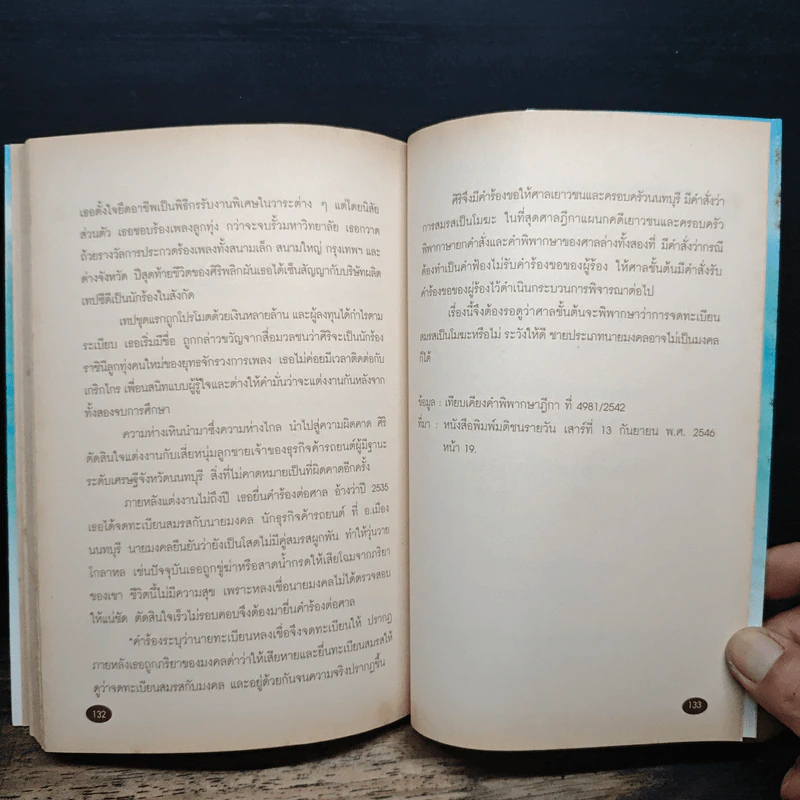 เธอตั้งใจยึดอาชีพเป็นพิธีกรรับงานพิเศษในวาระต่าง ๆ แต่โดยนิสัย
ส่วนตัว เธอชอบร้องเพลงลูกทุ่ง กว่าจะจบรั้วมหาวิทยาลัย เธอกวาด
ถ้วยรางวัลการประกวดร้องเพลงทั้งสนามเล็ก สนามใหญ่ กรุงเทพฯ และ
ต่างจังหวัด ปีสุดท้ายชีวิตของศิริพลิกผันเธอได้เซ็นสัญญากับบริษัทผลิต
เทปซีดีเป็นนักร้องในสังกัด
เทปชุดแรกถูกโปรโมตด้วยเงินหลายล้าน และผู้ลงทุนได้กำไรตาม
ระเบียบ เธอเริ่มมีชื่อ ถูกกล่าวขวัญจากสื่อมวลชนว่าศิริจะเป็นนักร้อง
ราชินีลูกทุ่งคนใหม่ของยุทธจักรวงการเพลง เธอไม่ค่อยมีเวลาติดต่อกับ
เกริกไกร เพื่อนสนิทแบบผู้รู้ใจและต่างให้คำมั่นว่าจะแต่งงานกันหลังจาก
ทั้งสองจบการศึกษา
ความห่างเหินนำมาซึ่งความห่างไกล นำไปสู่ความผิดคาด ศิริ
ตัดสินใจแต่งงานกับเสี่ยหนุ่มลูกชายเจ้าของธุรกิจค้ารถยนต์ผู้มีฐานะ
ระดับเศรษฐีจังหวัดนนทบุรี สิ่งที่ไม่คาดหมายเป็นที่ผิดคาดอีกครั้ง
ภายหลังแต่งงานไม่ถึงปี เธอยื่นคำร้องต่อศาล อ้างว่าปี 2535
เธอได้จดทะเบียนสมรสกับนายมงคล นักธุรกิจค้ารถยนต์ ที่ อ.เมือง
นนทบุรี นายมงคลยืนยันว่ายังเป็นโสดไม่มีคู่สมรสผูกพัน ทำให้วุ่นวาย
โกลาหล เช่นปัจจุบันเธอถูกขู่ฆ่าหรือสาดน้ำกรดให้เสียโฉมจากภริยา
ของเขา ชีวิตนี้ไม่มีความสุข เพราะหลงเชื่อนายมงคลไม่ได้ตรวจสอบ
ให้แน่ชัด ตัดสินใจเร็วไม่รอบคอบจึงต้องมายื่นคำร้องต่อศาล
"คำร้องระบุว่านายทะเบียนหลงเชื่อจึงจดทะเบียนให้ ปรากฏ
ภายหลังเธอถูกภริยาของมงคลด่าว่าให้เสียหายและยื่นทะเบียนสมรสให้
ดูว่าจดทะเบียนสมรสกับมงคล และอยู่ด้วยกันจนความจริงปรากฏขึ้น
132
ศิริจึงมีคำร้องขอให้ศาลเยาวชนและครอบครัวนนทบุรี มีคำสั่งว่า
การสมรสเป็นโมฆะ ในที่สุดศาลฎีกาแผนกคดีเยาวชนและครอบครัว
พิพากษายกคำสั่งและคำพิพากษาของศาลล่างทั้งสองที่ มีคำสั่งว่ากรณี
ต้องทำเป็นคำฟ้องไม่รับคำร้องขอของผู้ร้อง ให้ศาลชั้นต้นมีคำสั่งรับ
คำร้องขอของผู้ร้องไว้ดำเนินกระบวนการพิจารณาต่อไป
เรื่องนี้จึงต้องรอดูว่าศาลชั้นต้นจะพิพากษาว่าการจดทะเบียน
สมรสเป็นโมฆะหรือไม่ ระวังให้ดี ชายประเภทนายมงคลอาจไม่เป็นมงคล
ก็ได้
ข้อมูล : เทียบเคียงคำพิพากษาฎีกา ที่ 4981/2542
ที่มา : หนังสือพิมพ์มติชนรายวัน เสาร์ที่ 13 กันยายน พ.ศ. 2546
หน้า 19.
133